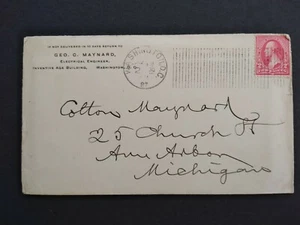 IF NOT DELIVERED IN 10 DAYS RETURN TO
GEO. C. MAYNARD,
ELECTRICAL ENGINEER,
INVENTIVE AGE BUILDING, WASHINGTON,
WASHINGTON, D.C.
Cotton Maynard
25 Church St
Ann Arbor
Michigan